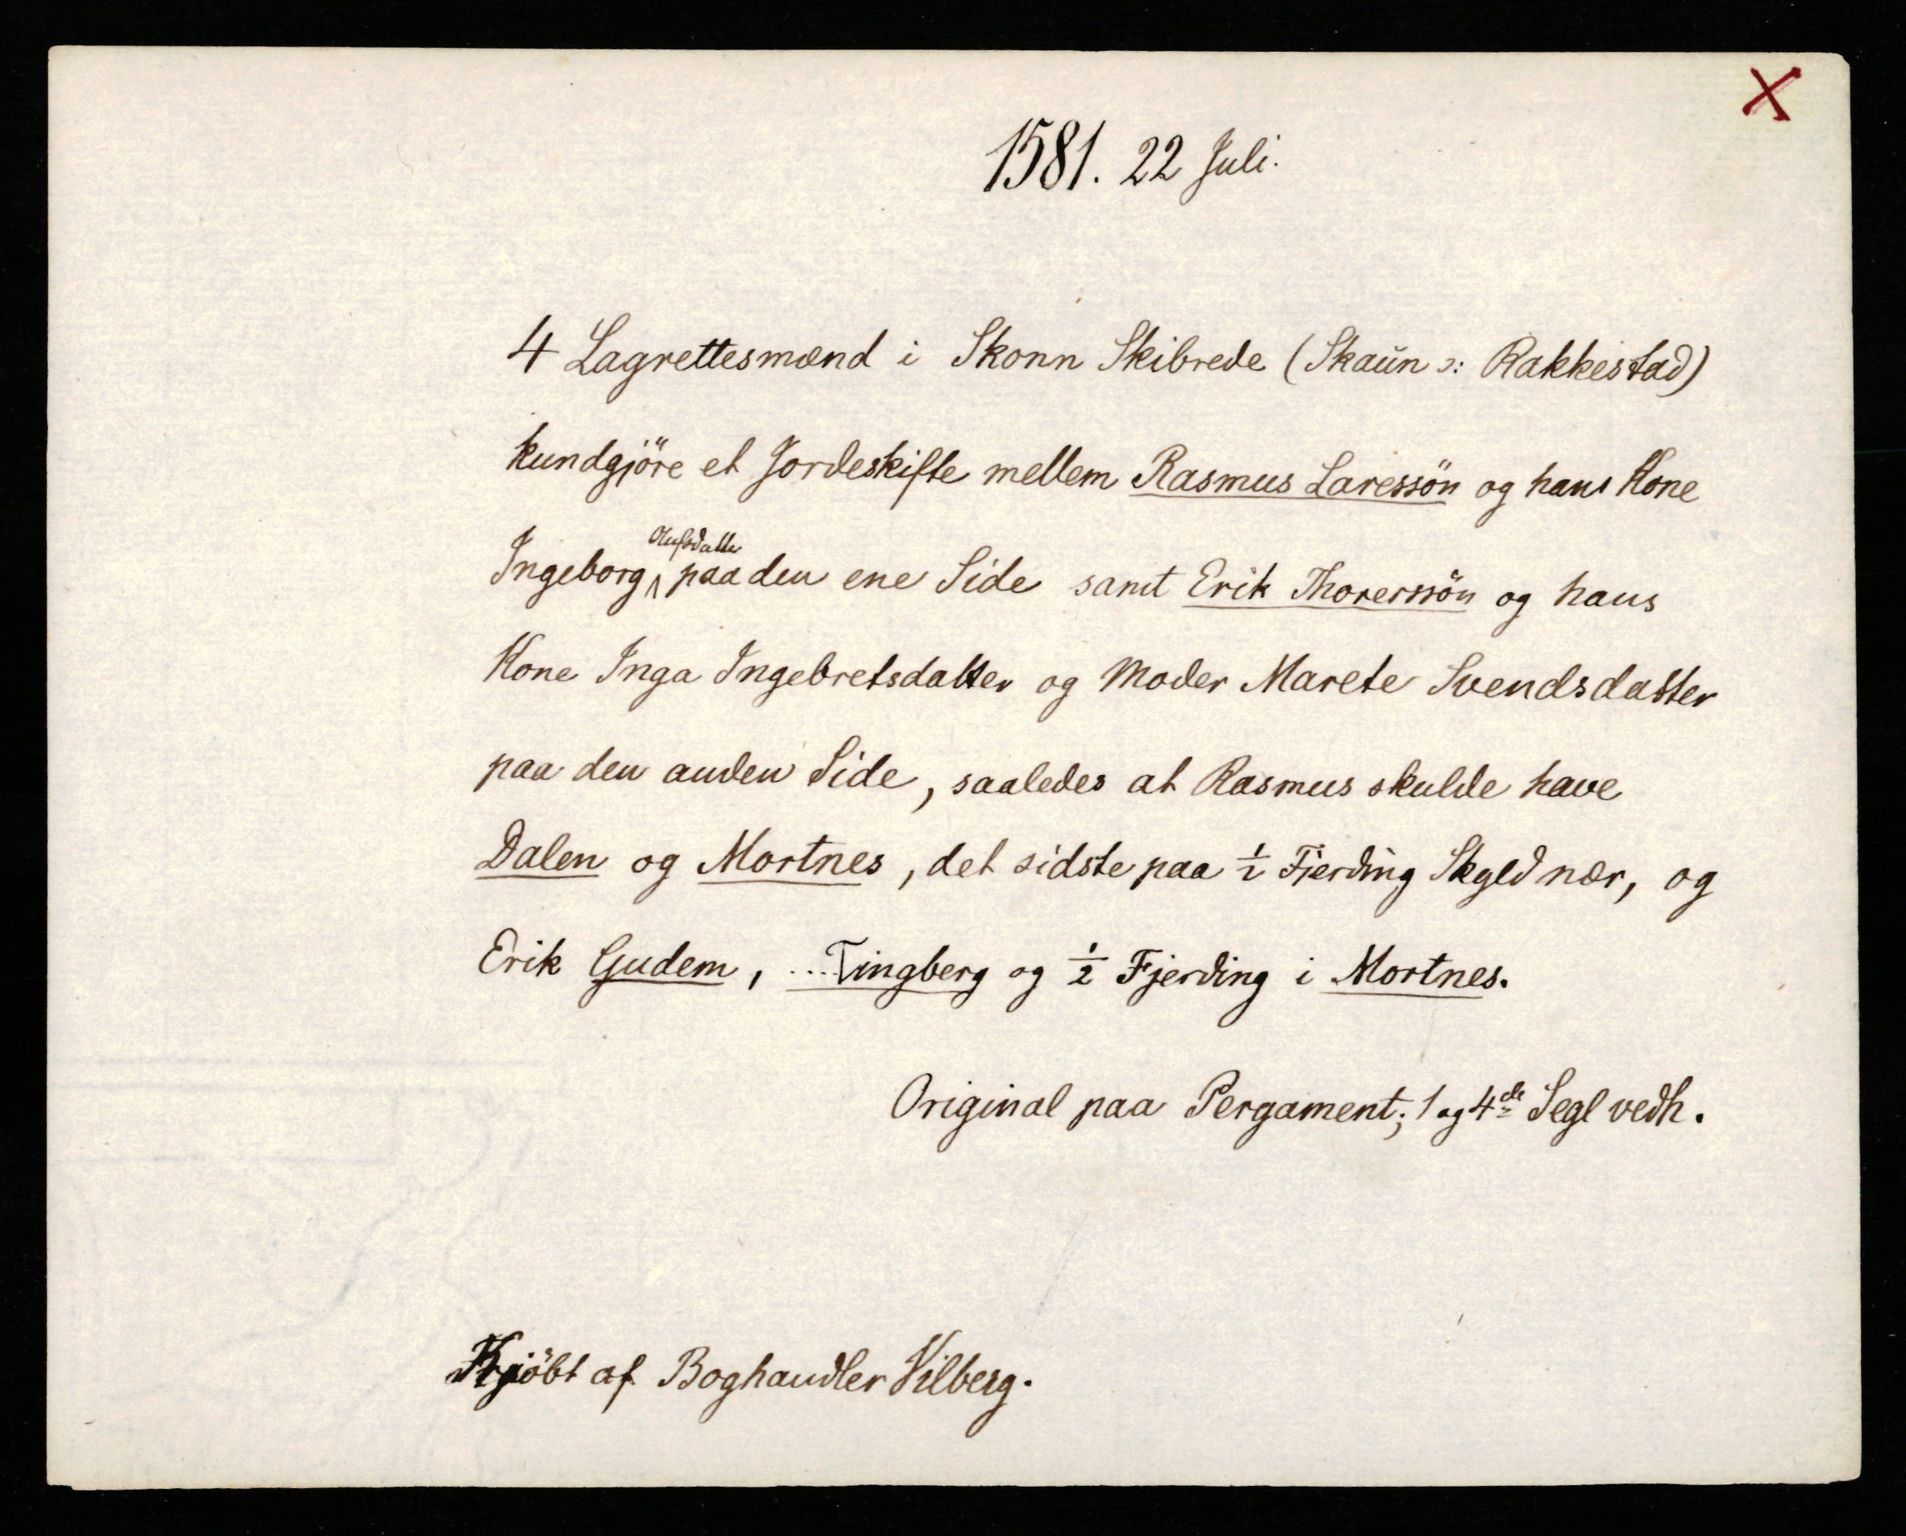 X
1581. 22 Juli.
4 Lagrettesmænd i Skonn Skibrede (Skaun ɔ: Rakkestad)
kundgjöre et Jordeskifte mellem Rasmus Laressön og hans Kone
Ingeborg Olufsdatter paa den ene Side samt Erik Thorerssön og hans
Kone Inga Ingebretsdatter og Moder Marete Svendsdatter
paa den anden Side, saaledes at Rasmus skulde have
Dalen og Mortnes, det sidste paa ½ Fjerding Skyld nær, og
Erik Gudem, ...Tingberg og ½ Fjerding i Mortnes.
Original paa Pergament; 1 og 4de Segl vedh.
Kjöbt af Boghandler Vilberg.